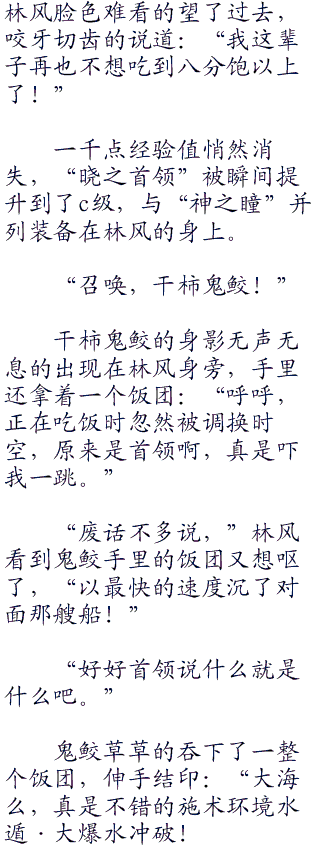 林风脸色难看的望了过去，
咬牙切齿的说道：“我这辈
子再也不想吃到八分饱以上
了！”
一千点经验值悄然消
失，“晓之首领”被瞬间提
升到了c级，与“神之瞳”并
列装备在林风的身上。
“召唤，干柿鬼鲛！”
干柿鬼鲛的身影无声无
息的出现在林风身旁，手里
还拿着一个饭团：“呼呼，
正在吃饭时忽然被调换时
空，原来是首领啊，真是吓
我一跳。”
“废话不多说，”林风
看到鬼鲛手里的饭团又想呕
了，“以最快的速度沉了对
面那艘船！”
“好好首领说什么就是
什么吧。”
鬼鲛草草的吞下了一整
个饭团，伸手结印：“大海
么，真是不错的施术环境水
遁·大爆水冲破！